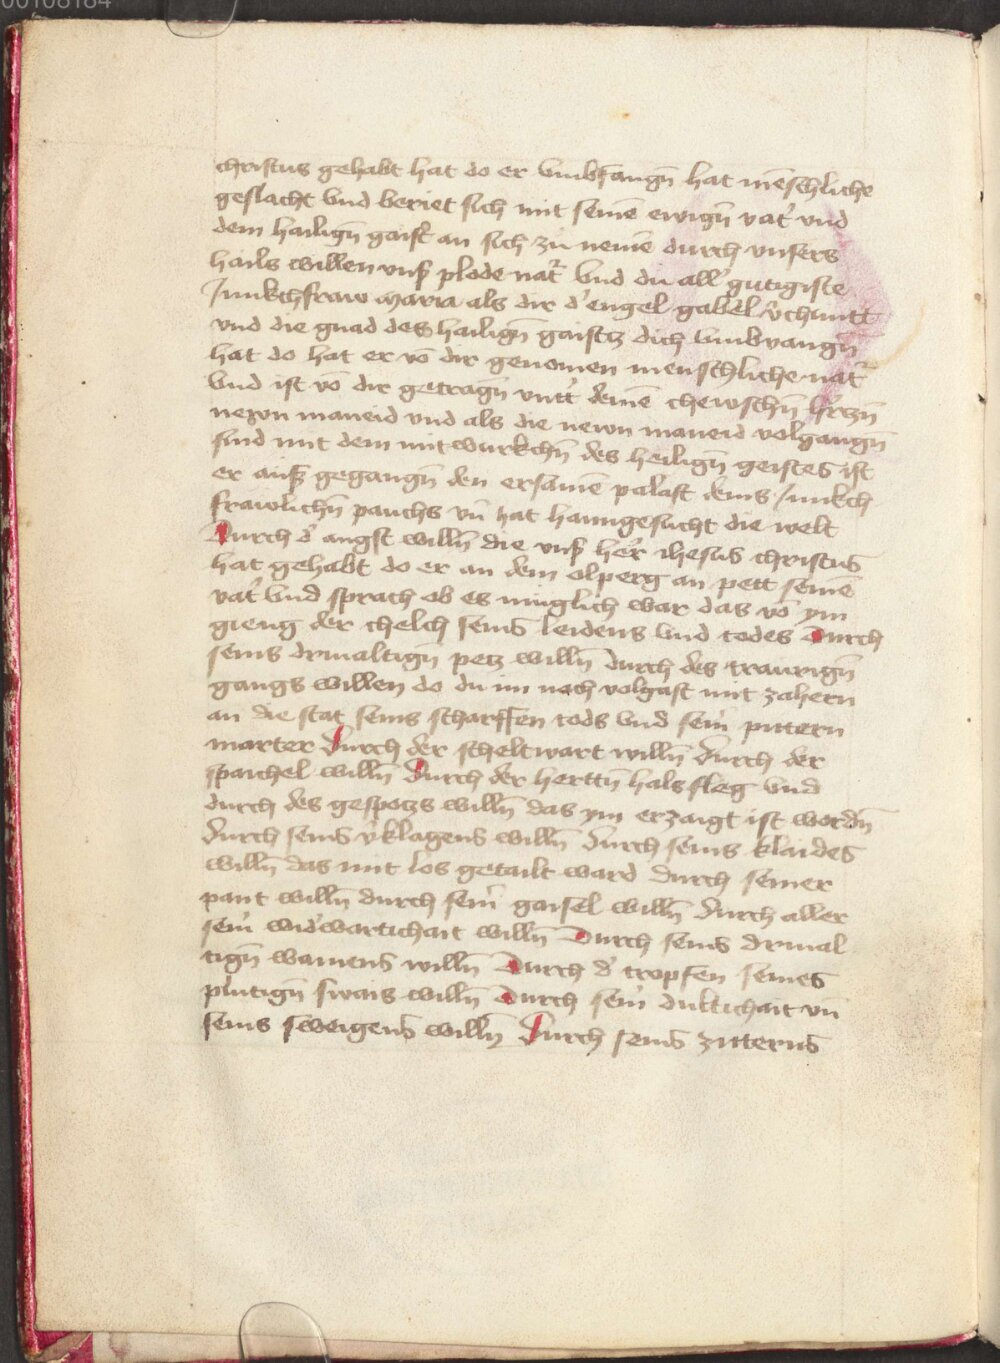 00108184
christus gehabt hat do er vmbfangn̄ hat mēschliche
geslacht vnd beriet sich mit seinē ewign̄ vat̕ vnd
dem hailign̄ gaist an sich zu nemē durch vnsers
hails willen vnß plode nat̕ vnd du all̕ gutigiste
Junkchfraw maria als dir d̕ engel gab̕el v̕chuntt
vnd die gnad des hailign̄ gaistz dich vmbvangn̄
hat do hat er vō dir genomen menschliche nat̕
vnd ist vō dir getragn̄ vntt̕ deinē chewschn̄ h̕rczn̄
newn maneid vnd als die newn maneid volgangn̄
sind mit dem mitwurkchn̄ des heilign̄ geistes ist
er auß gegangn̄ den ersamē palast deins Junkch
frawlichn̄ pauchs vn̄ hat haimgesucht die welt
Durch d̕ angst willn̄ die vnß her̕ ihesus christus
hat gehabt do er an dem olperg an pett seinē
vat̕ vnd sprach ob es muglich war das vō ym
gieng der chelch seins leidens vnd todes Durch
seins drinaltign̄ petz willn̄ durch des traurign̄
gangs willen do du im nach volgast mit zahern
an die stat seins scharffen tods vnd sein̕ pittern
marter Durch der scheltwart willn̄ durch der
spaichel willn̄ Durch der herttn̄ hals sleg vnd
durch des gespotzs willn̄ das ym erzaigt ist wordn̄
durch seins v̕klagens willn̄ durch seins klaides
willn̄ das mit los getailt ward durch seiner
pant willn̄ durch sein̕ gaisel willn̄ durch aller
sein̕ wid̕wartichait willn̄ Durch seins drinal
tign̄ wainens willn̄ Durch d̕ tropfen seines
plutign̄ swais willn̄ Durch sein̕ dultichait vn̄
seins sweigens willn̄ Durch seins zitterns